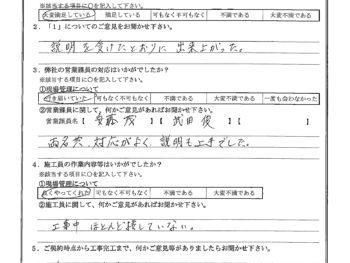 ※該当する項目に○を記入して下さい。
大変満足している 満足している 可もなく不可もなく 不満である 大変不満である
2．「1」についてのご意見をお聞かせ下さい。
説明を受けたとおりに出来上がった。
3．弊社の営業課員の対応はいかがでしたか？
※該当する項目に○を記入して下さい。
①現場管理について
行き届いていた 可もなく不可もなく 不満である 大変不満である 一度も会わなかった
②営業課員に関して、何かご意見があればお聞かせ下さい。
営業課員名【 安藤 茂 】【 武田 俊 】
両名共、対応がよく、説明も上手でした。
4．施工員の作業内容等はいかがでしたか？
※該当する項目に○を記入して下さい。
①現場管理について
良くやってくれた 可もなく不可もなく 不満である 大変不満である
②施工員に関して、何かご意見があればお聞かせ下さい。
工事中 ほとんど接していない。
5．ご契約時点から工事完工まで、何かご意見等がありましたらお聞かせ下さい。